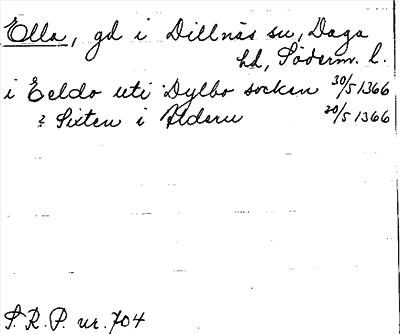 Ella, gd i Dillnäs sn, Daga
hd, Söderm. l.
i Eeldo uti Dylbo socken 30/5 1366
Sixten i Alderu 20/5 1366
S.R.P. nr. 704